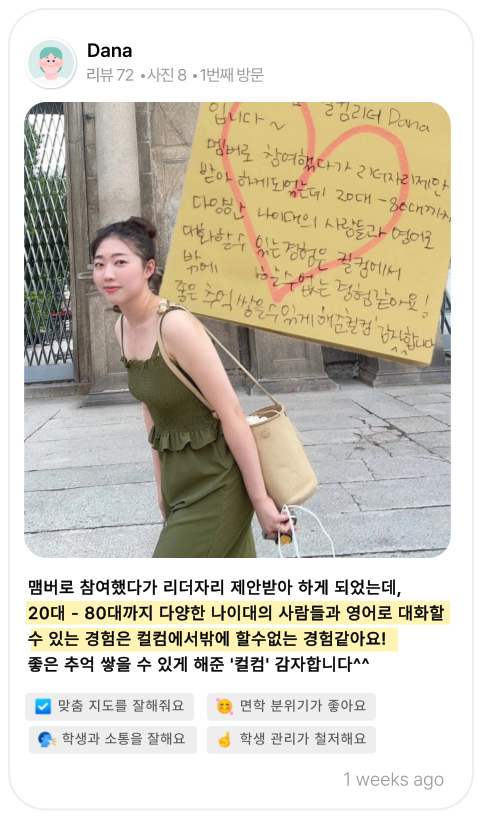 Dana
리뷰 72 •사진 8 •1번째 방문
입니다~ 컬컴리더 Dana
멤버로 참여했다가 리더자리제안
받아 하게되었는데 20대 - 80대까지
다양한 나이대의 사람들과 영어로
대화할수 있는경험은 컬컴에서
밖에 할수없는 경험같아요!
좋은 추억 쌓을수있게 해준컬컴' 감사합니다
멤버로 참여했다가 리더자리 제안받아 하게 되었는데,
20대 - 80대까지 다양한 나이대의 사람들과 영어로 대화할
수 있는 경험은 컬컴에서밖에 할수없는 경험같아요!
좋은 추억 쌓을 수 있게 해준 '컬컴' 감자합니다^^
맞춤 지도를 잘해줘요
면학 분위기가 좋아요
학생과 소통을 잘해요
학생 관리가 철저해요
1 weeks ago